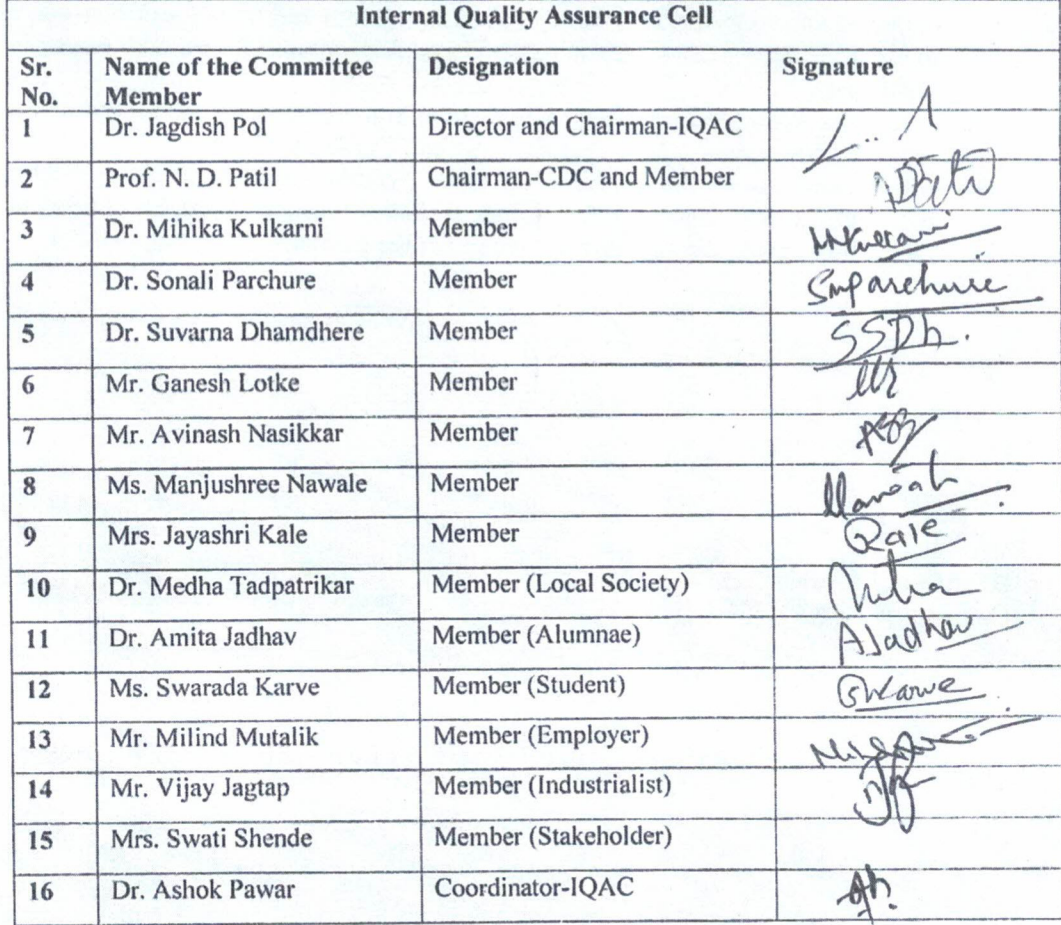 Internal Quality Assurance Cell
Sr. No. Name of the Committee Member Designation Signature
1 Dr. Jagdish Pol Director and Chairman-IQAC
2 Prof. N. D. Patil Chairman-CDC and Member
3 Dr. Mihika Kulkarni Member
4 Dr. Sonali Parchure Member Smparchure
5 Dr. Suvarna Dhamdhere Member SSDh.
6 Mr. Ganesh Lotke Member
7 Mr. Avinash Nasikkar Member
8 Ms. Manjushree Nawale Member
9 Mrs. Jayashri Kale Member
10 Dr. Medha Tadpatrikar Member (Local Society)
11 Dr. Amita Jadhav Member (Alumnae) AJadhav
12 Ms. Swarada Karve Member (Student)
13 Mr. Milind Mutalik Member (Employer)
14 Mr. Vijay Jagtap Member (Industrialist)
15 Mrs. Swati Shende Member (Stakeholder)
16 Dr. Ashok Pawar Coordinator-IQAC